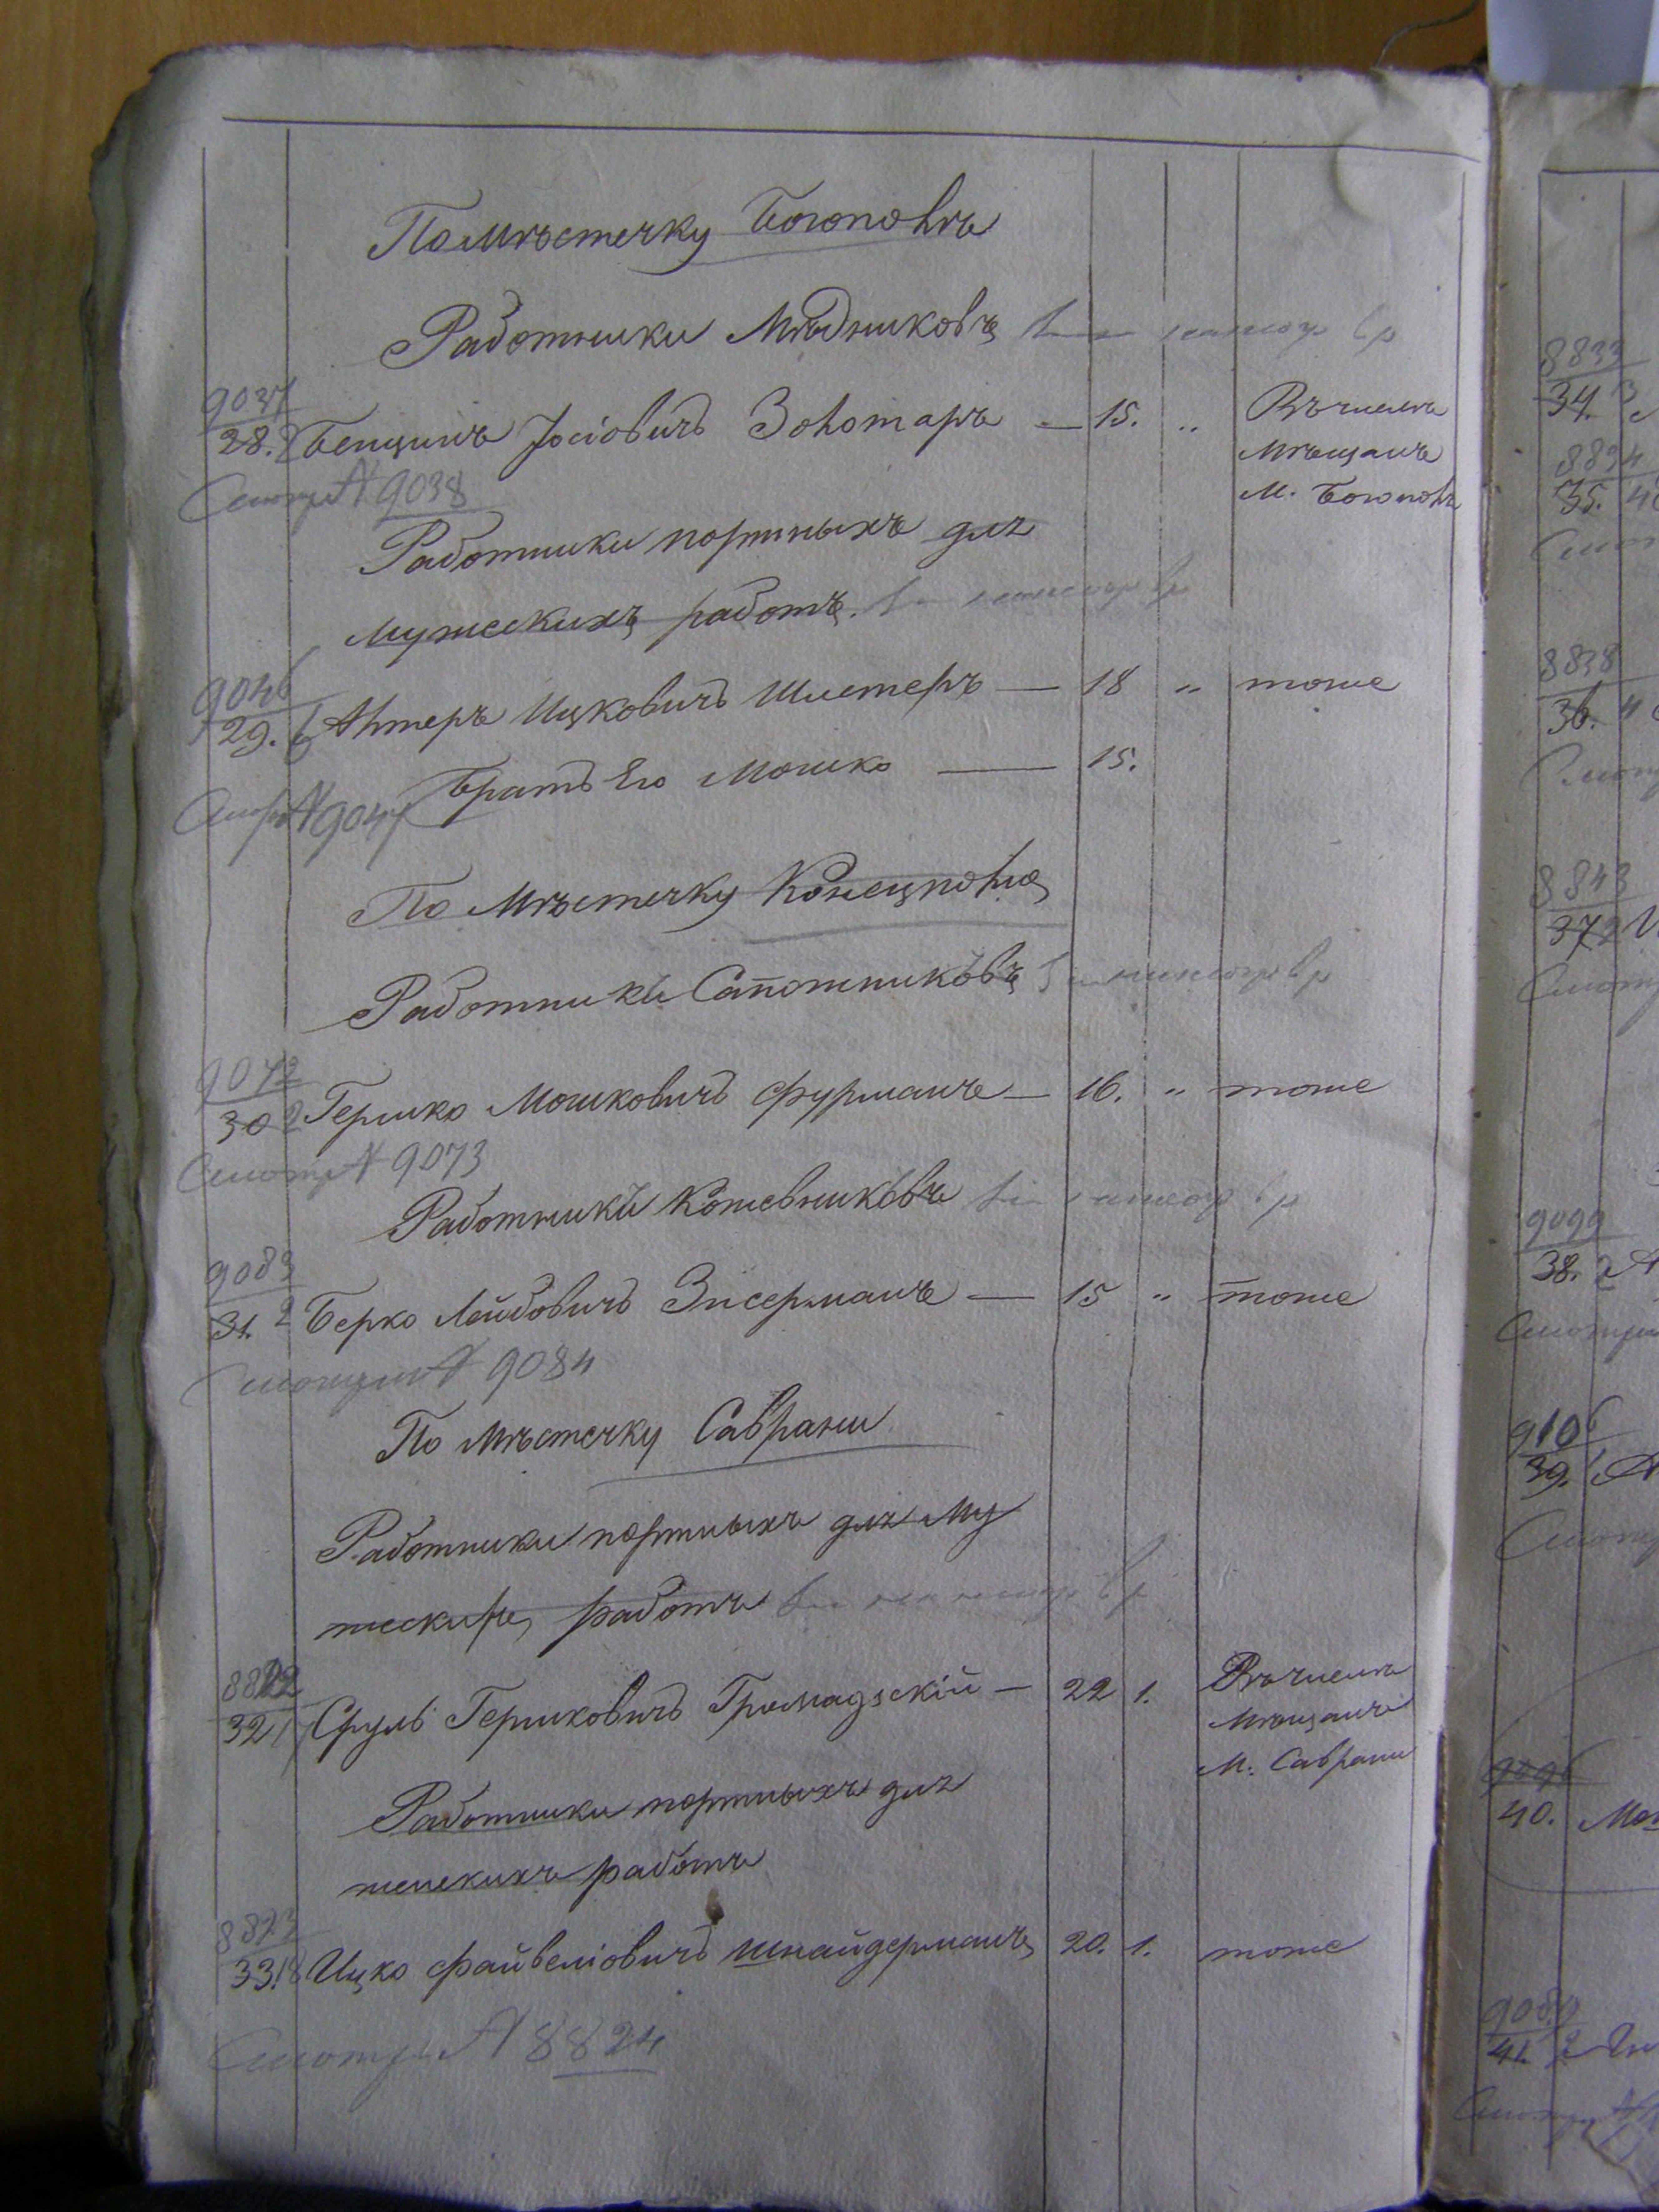 По Мѣстечку Богополь
Работники Мѣдниковъ
9037
28. 2 Бенцинъ Іосіовичъ Золотаръ — 15. „ Въ числѣ
Мѣщанъ
М. Богополь
Смотр № 9038
Работники портныхъ для
мужескихъ работъ.
9046
29. 6 Алтеръ Ицковичъ Шистеръ — 18 „ тоже
Братъ Его Мошко — 15.
Смотр № 9047
По Мѣстечку Конецполю
Работники Сапожниковъ
9072
30 2 Гершко Мошковичъ Фурманъ — 16. „ тоже
Смотр № 9073
Работники Кожевниковъ
9083
31. 2 Берко Лейбовичъ Зисерманъ — 15 „ тоже
Смотри № 9084
По Мѣстечку Саврани
Работники портныхъ для Му
жескихъ работъ
32 Сруль Гершковичъ Громадзскій — 22 1. Въ числѣ
Мѣщанъ
М. Саврани
Работники портныхъ для
женскихъ работъ
8823
33. 18 Ицко Файвеліовичъ Шнайдерманъ 20. 1. тоже
Смотри № 8824
8833
34. 3
8834
35. 4
8838
36. 4
8843
37 2
9099
38. 2
9106
39.
9096
40. Мо
9089
41. 2